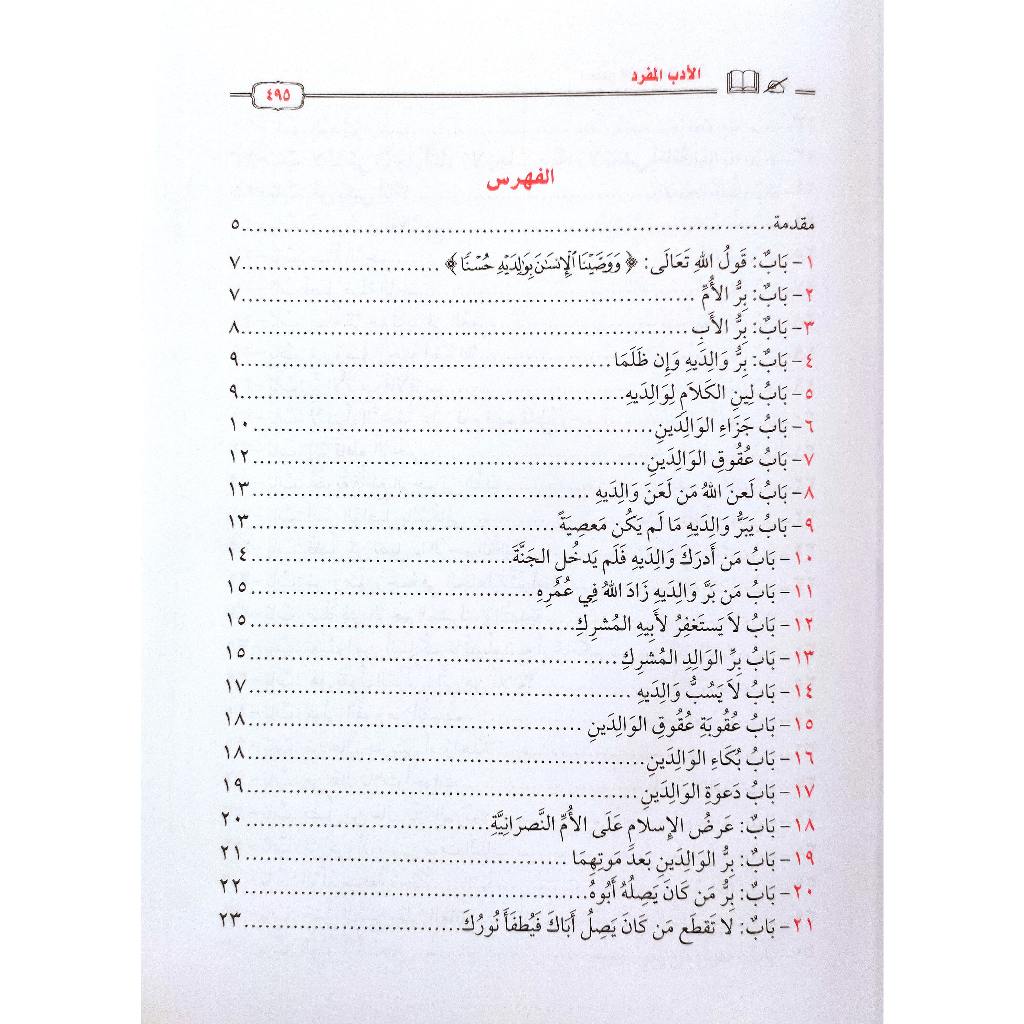 الأدب المفرد
٤٩٥
الفهرس
مقدمة................................................................٥
١- بَابٌ: قَولُ اللهِ تَعَالَى: ﴿وَوَصَّيْنَا ٱلْإِنسَٰنَ بِوَٰلِدَيْهِ حُسْنًا﴾ ..............................٧
٢- بَابٌ: بِرُّ الأُمِّ ................................................................٧
٣- بَابٌ: بِرُّ الأَبِ ................................................................٨
٤- بَابٌ: بِرُّ وَالِدَيهِ وَإِن ظَلَمَا................................................................٩
٥- بَابُ لِينِ الكَلاَمِ لِوَالِدَيهِ................................................................٩
٦- بَابُ جَزَاءِ الوَالِدَينِ................................................................١٠
٧- بَابُ عُقُوقِ الوَالِدَينِ................................................................١٢
٨- بَابُ لَعنَ اللهُ مَن لَعَنَ وَالِدَيهِ ................................................................١٣
٩- بَابُ يَبَرُّ وَالِدَيهِ مَا لَم يَكُن مَعصِيَةً ..................................................١٣
١٠- بَابُ مَن أَدرَكَ وَالِدَيهِ فَلَم يَدخُلِ الجَنَّةَ..................................................١٤
١١- بَابُ مَن بَرَّ وَالِدَيهِ زَادَ اللهُ فِي عُمُرِهِ..................................................١٥
١٢- بَابُ لاَ يَستَغفِرُ لأَبِيهِ المُشرِكِ..................................................١٥
١٣- بَابُ بِرِّ الوَالِدِ المُشرِكِ..................................................١٥
١٤- بَابُ لاَ يَسُبُّ وَالِدَيهِ ..................................................١٧
١٥- بَابُ عُقُوبَةِ عُقُوقِ الوَالِدَينِ ..................................................١٨
١٦- بَابُ بُكَاءِ الوَالِدَينِ..................................................١٨
١٧- بَابُ دَعوَةِ الوَالِدَينِ..................................................١٩
١٨- بَابٌ: عَرضُ الإِسلامِ عَلَى الأُمِّ النَّصرَانِيَّةِ........................................٢٠
١٩- بَابٌ: بِرُّ الوَالِدَينِ بَعدَ مَوتِهِمَا ..................................................٢١
٢٠- بَابٌ: بِرُّ مَن كَانَ يَصِلُهُ أَبُوهُ..................................................٢٢
٢١- بَابٌ: لا تَقطَع مَن كَانَ يَصِلُ أَبَاكَ فَيُطفَأَ نُورُكَ..............................٢٣